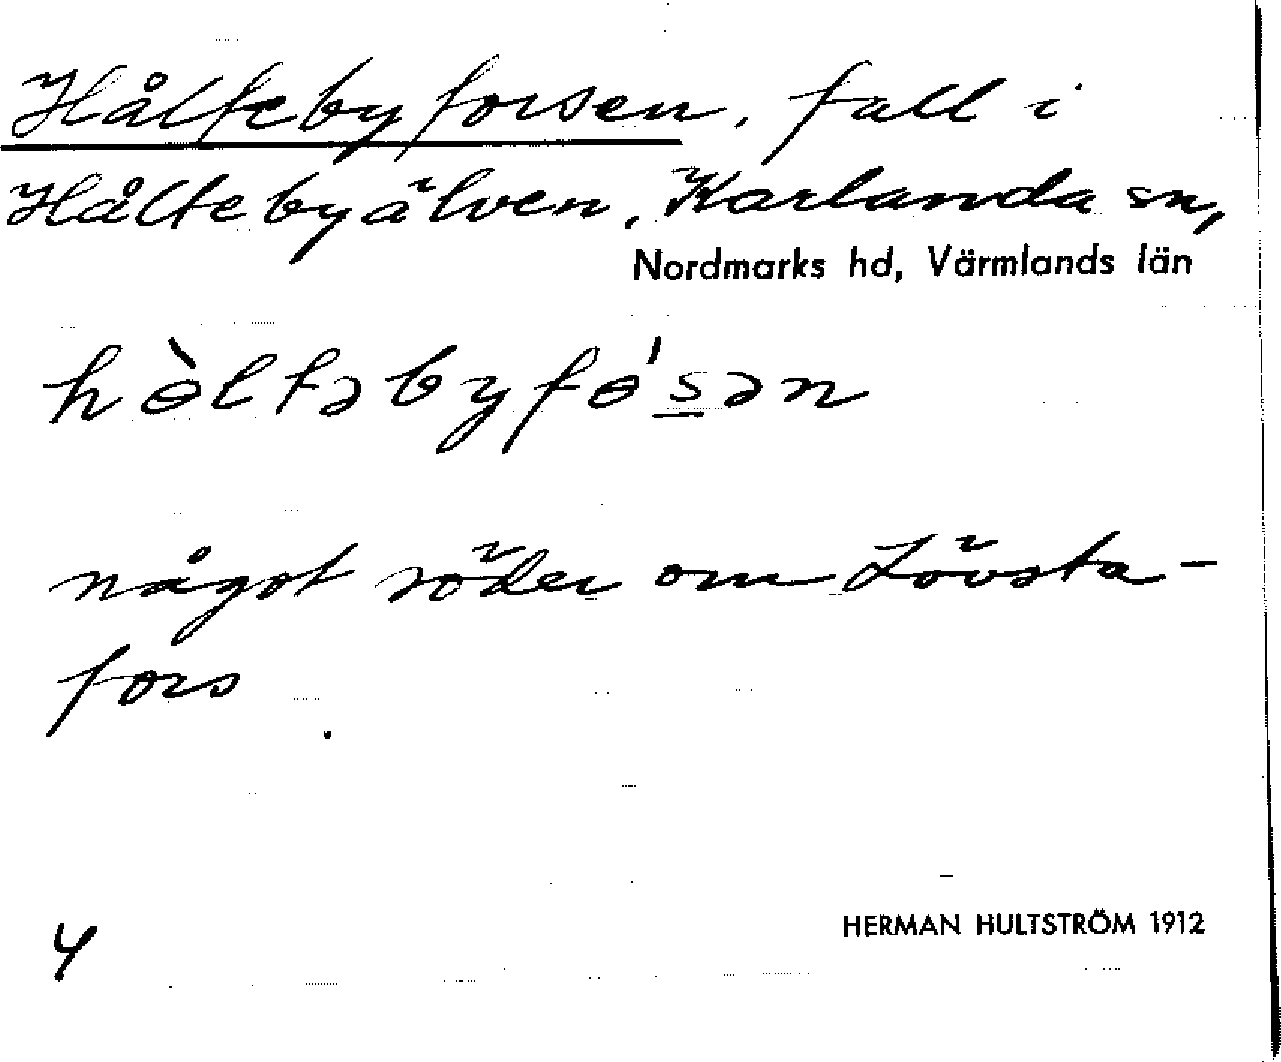 Håltebyforsen, fall i
Håltebyälven, Karlanda sn,
Nordmarks hd, Värmlands län
hɵ̀ltəbyfɵ́s̠ən
något söder om Lövsta-
fors
4
HERMAN HULTSTRÖM 1912